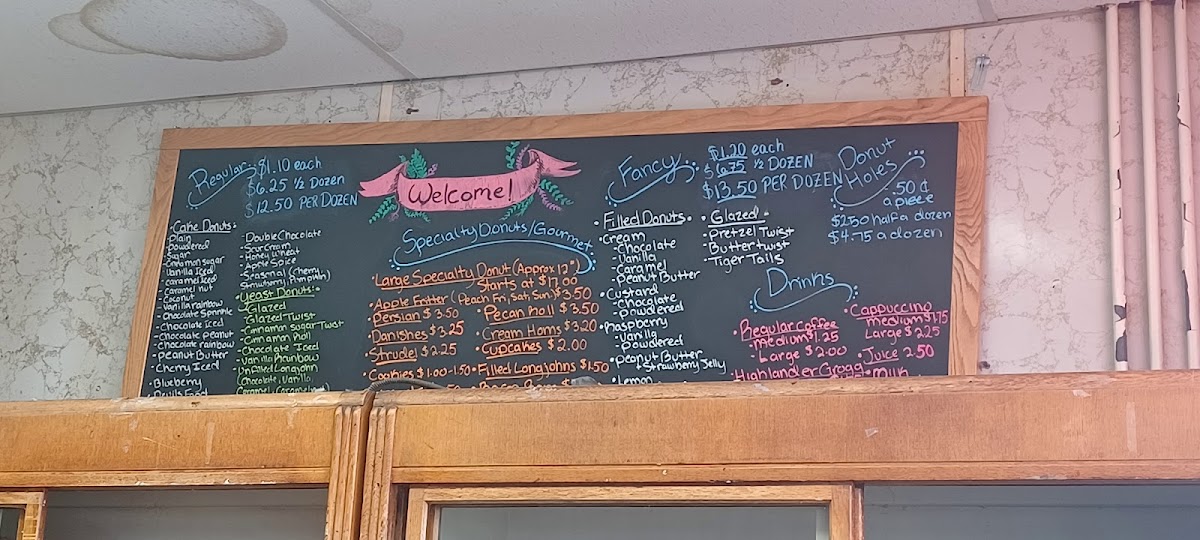 Regular: $1.10 each
$6.25 ½ Dozen
$12.50 PER DOZEN
• Cake Donuts:
- Plain
- Powdered
- Sugar
- Cinnamon sugar
- Vanilla Iced
- Caramel iced
- Caramel nut
- Coconut
- Vanilla rainbow
- Chocolate Sprinkle
- Chocolate Iced
- Chocolate peanut
- Chocolate rainbow
- Peanut Butter
- Cherry Iced
- Blueberry
- Devils Food
- Double Chocolate
- Sour Cream
- Honey Wheat
- Apple Spice
- (Cherry,
Strawberry, Pumpkin)
• Yeast Donuts:
- Glazed
- Glazed Twist
- Cinnamon Sugar Twist
- Cinnamon Roll
- Chocolate Iced
- Vanilla Rainbow
- Unfilled Longjohn
Chocolate, Vanilla,
Caramel
Welcome!
Specialty Donuts/Gourmet
• Large Specialty Donut (Approx 12")
Starts at $17.00
• Apple Fritter (Peach Fri, Sat, Sun) $3.50
• Persian $3.50
• Danishes $3.25
• Strudel $2.25
• Cookies $1.00-1.50
• Pecan Roll $3.50
• Cream Horns $3.20
• Cupcakes $2.00
• Filled Longjohns $1.50
Fancy: $1.20 each
$6.75 ½ DOZEN
$13.50 PER DOZEN
• Filled Donuts •
• Cream
- Chocolate
- Vanilla
- Caramel
- Peanut Butter
• Custard
- Chocolate
- Powdered
• Raspberry
- Vanilla
- Powdered
• Peanut Butter
+ Strawberry Jelly
• Lemon
• Glazed •
- Pretzel Twist
- Butter twist
- Tiger Tails
Donut Holes
.50 ¢
a piece
$2.50 half a dozen
$4.75 a dozen
Drinks
• Regular Coffee
- medium $1.25
- Large $2.00
• Highlander Grogg
• Cappuccino
medium $1.75
Large $2.25
• Juice 2.50
• Milk